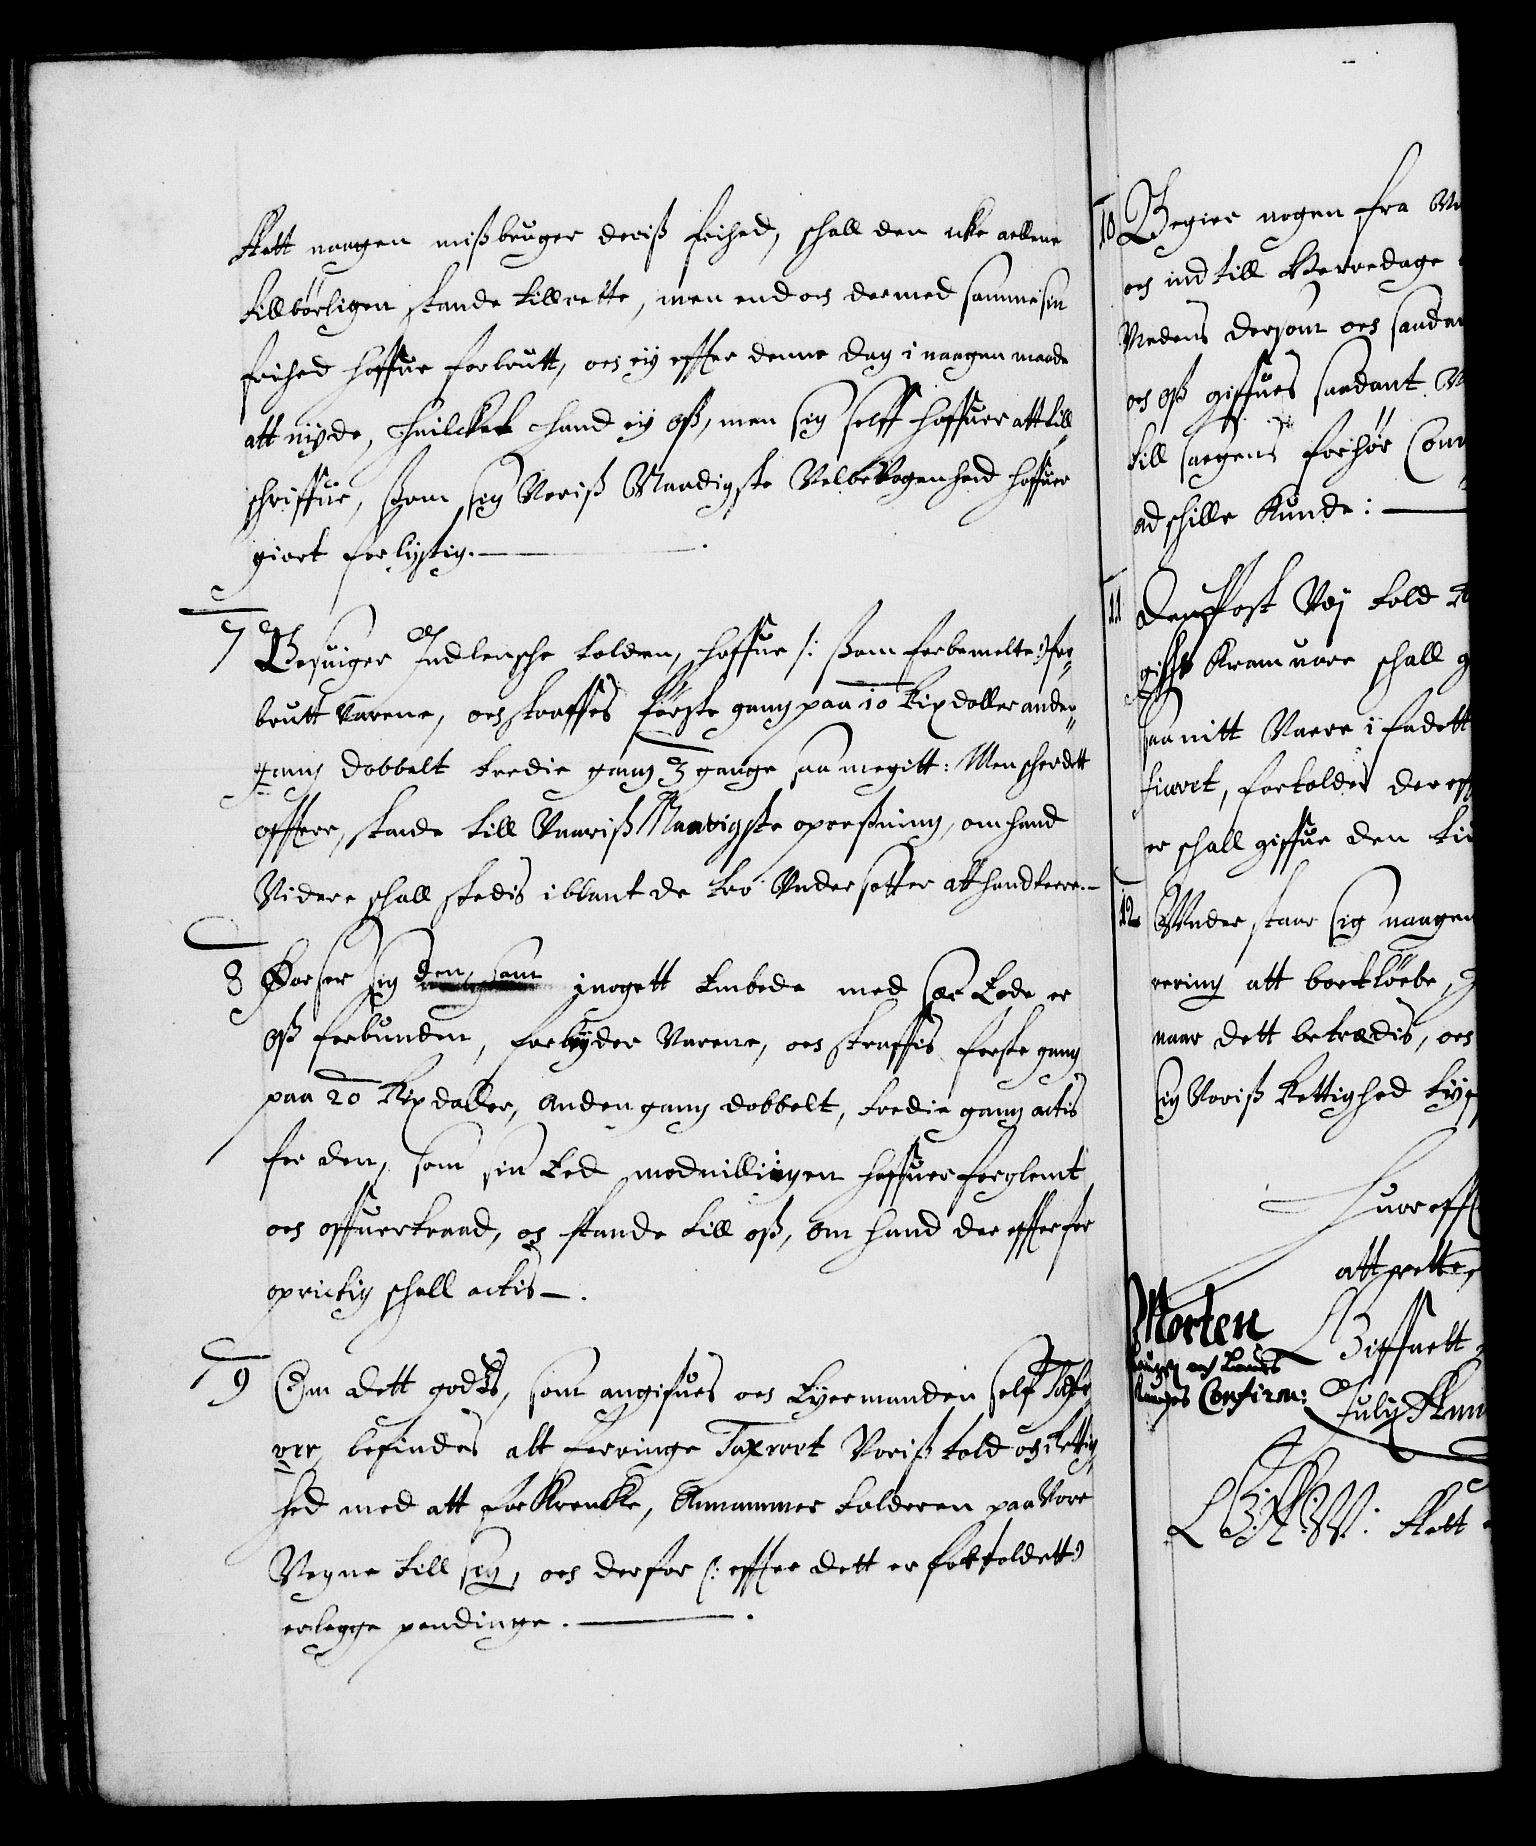 Att naagen mißbruger deriß frihed, schall den icke aellene
tillbörligen stande tillrette, men end och dermed samme sin
frihed haffue forbrutt, och ey effter denne dag i naagen maade
att nyde, huilcket hand ey oß, men sig self haffuer att till¬
schriffue, som sig Voriß Naadigste Velbevogenhed haffuer
giort forlystig.
7 Besuiger Indlensche tolden, haffue /: ßom forbemelte :/ for¬
brutt varene, och straffes første gang paa 10 Rixdaller anden
gang dobbelt tredie gang 3 gange saa megitt: Men scher dett
offtere, stande till Vaariß Naadigste opreßning, om hand
Videre schall stedis iblant de tro Undersotter att handtere.
8 Forser sig den, som i nogett Embede med sær Eede er
oß forbunden, forbryder Varene, och straffis første gang
paa 20 Rixdaller, anden gang dobbelt, tredie gang actis
for den, som sin Eed modvilligen haffuer forglemt
och offuertraad, og stande till oß, om hand der effter for
oprictig schall actis.
9 Om dett godtz, som angifues och Eyermanden self Taxe
rer, befindes alt forringe Taxerit Voriß told och rettig
hed med att forkrencke, Annammer tolderen paa Vore
Vegne till sig, och derfor (: effter dett er fortoldett :)
erlegge pendinge.
10 Begier nogen fra
och ind till Herredage
Medens dersom och saadan
och oß giffues saadant
till saegens forhør Com
ad schille kunde:
11 Den Post Vej told
gifft kramuare schall
saauitt Vaere i fadett
ficert, fortoldes der eff
er schall giffue den
12 Under staar sig naagen
rering att bortløebe,
naar dett betrædis, och
sig Voriß Rettighed
Huor eff
att rette,
Morten
Confirm:
Giffuett
July Ann
Att